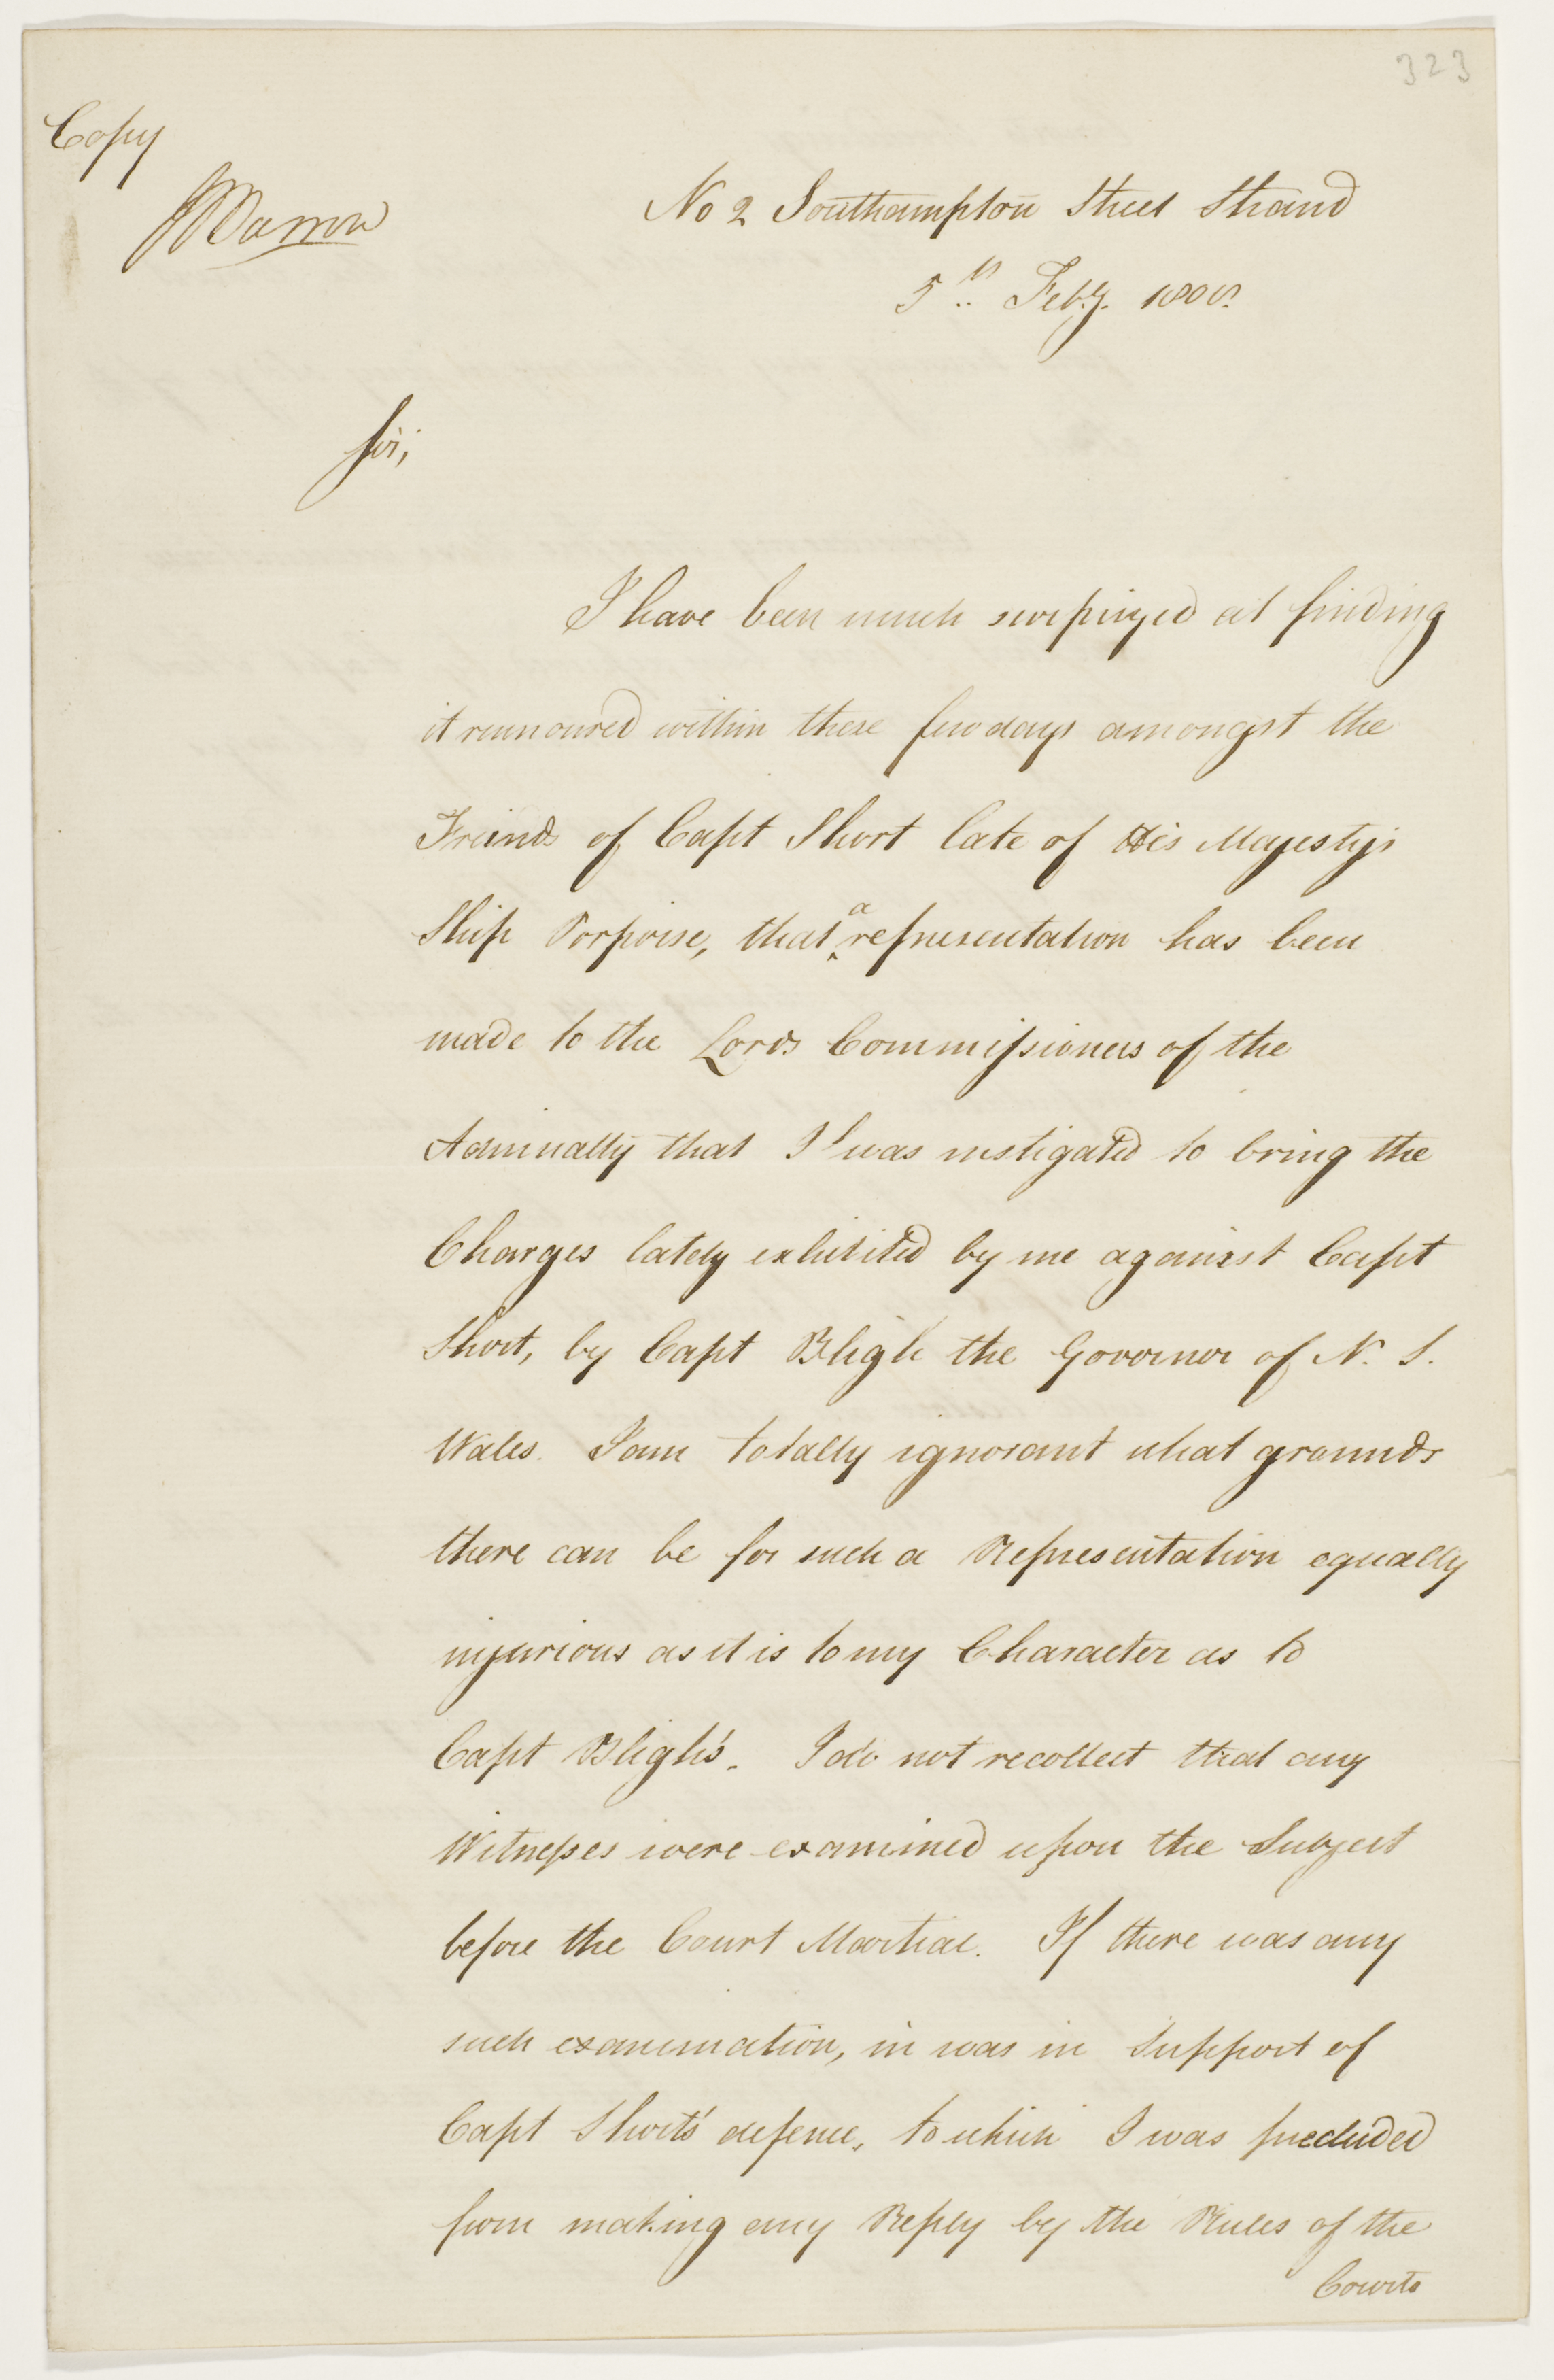 323
Copy
No 2 Southampton Street Strand
5th Feby. 1808
Sir,
I have been much surprized at finding
it rumoured within these few days amongst the
Freinds of Capt Short late of His Majesty's
Ship Porpoise, that a representation has been
made to the Lords Commissioners of the
Admiralty that I was instigated to bring the
Charges lately exhibited by me against Capt
Short, by Capt Bligh the Governor of N. S.
Wales. I am totally ignorant what grounds
there can be for such a Representation equally
injurious as it is to my Character as to
Capt Bligh's. I do not recollect that any
Witnesses were examined upon the Subject
before the Court Martial. If there was any
such examination, in was in Support of
Capt Short's defence, to which I was precluded
from making any Reply by the Rules of the
Courts